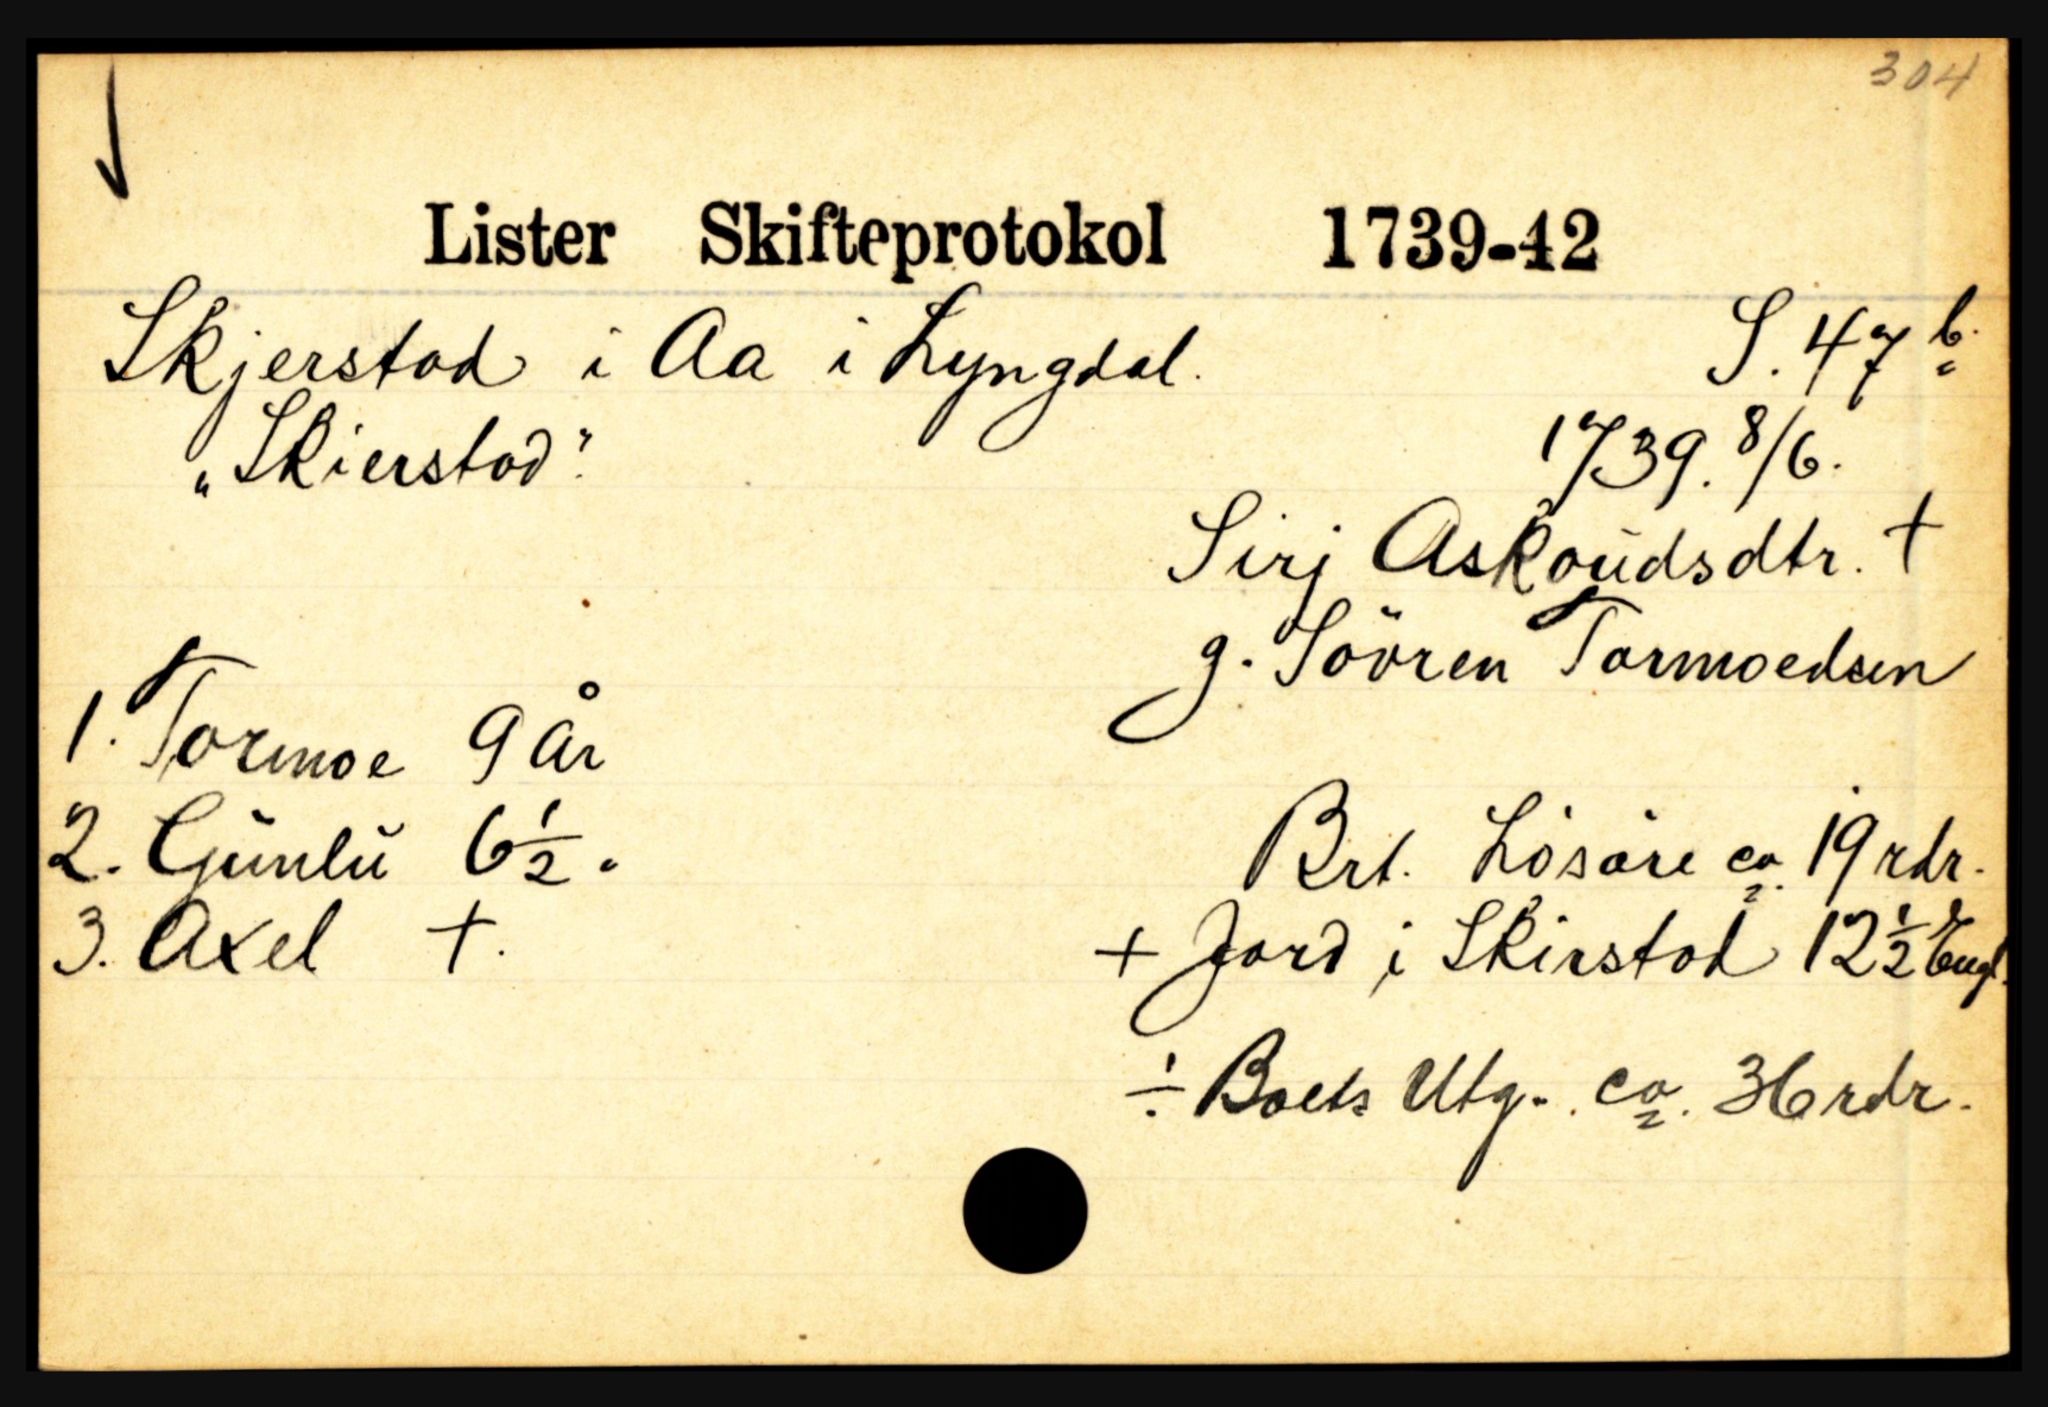 304
Lister Skifteprotokol 1739-42
Skjerstad i Aa i Lyngdal. S. 47 b.
„Skierstad". 1739. 8/6.
Sirj Askoŭdsdtr. †
g. Sövren Tormoedsen
1. Tormoe 9 År
2. Gŭnlŭ 6 1/2 "
Brt. Lösöre ca. 19 rdr.
3. Axel †.
+ Jord i Skirstad 12 1/2 Engl.
÷ Boets Utg. ca. 36 rdr.